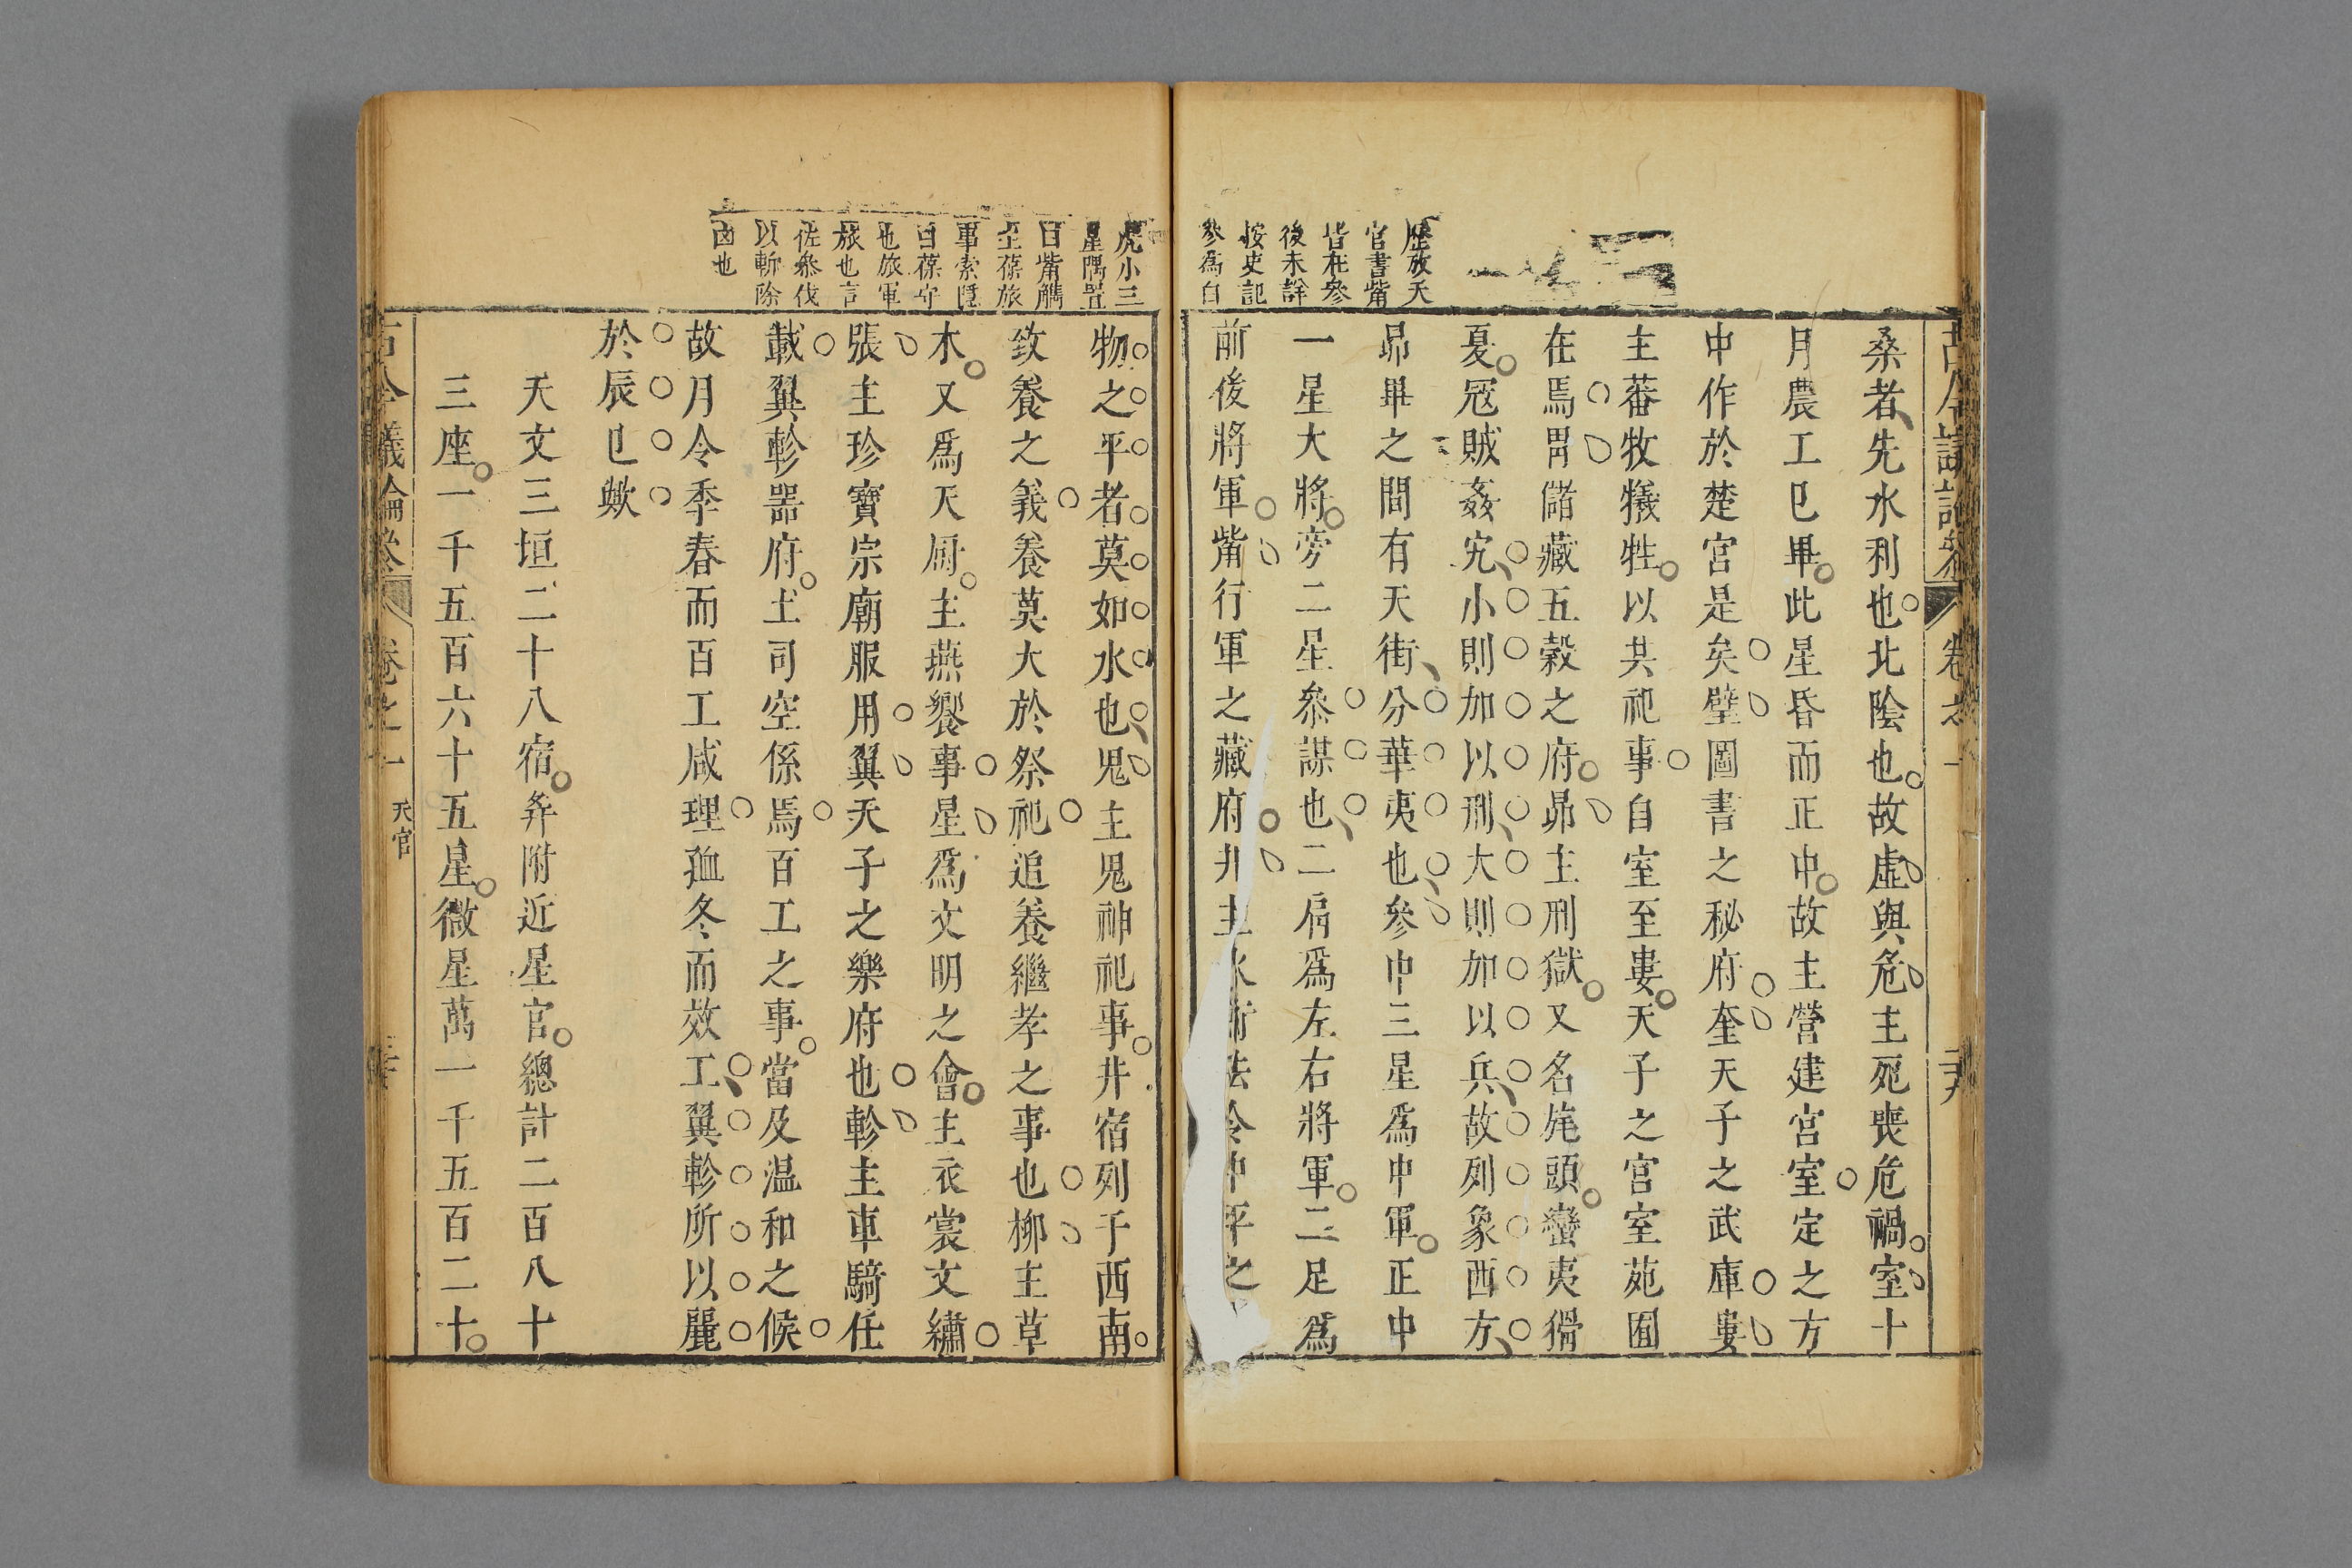 古今議論參 卷之一
桑者先水利也北陰也故虛與危主死喪危禍室十
月農工巳畢此星昏而正中故主營建宮室定之方
中作於楚宮是矣壁圖書之秘府奎天子之武庫婁
主蕃牧犧牲以共祀事自室至婁天子之宮室苑囿
在焉胃儲藏五穀之府昴主刑獄又名旄頭蠻夷猾
夏冦賊姦宄小則加以刑大則加以兵故列象西方
昴畢之間有天街分華夷也參中三星爲中軍正中
一星大將旁二星叅謀也二肩爲左右將軍二足爲
前後將軍觜行軍之藏府井主水法令中平之
歷放天
官書觜
皆在參
後未詳
按史記
參爲白
虎小三
星隅置
曰觜觿
主葆旅
事索隱
曰葆守
也旅軍
旅也言
佐叅伐
以斬除
凶也
物之平者莫如水也鬼主鬼神祀事井宿列于西南
致養之義養莫大於祭祀追養繼孝之事也柳主草
木又爲天厨主燕饗事星爲文明之會主衣裳文繡
張主珍寶宗廟服用翼天子之樂府也軫主車騎任
載翼軫器府土司空係焉百工之事當及温和之候
故月令季春而百工咸理孤冬而效工翼軫所以麗
於辰巳歟
天文三垣二十八宿并附近星官總計二百八十
三座一千五百六十五星微星萬一千五百二十
古今議論參 卷之一 天官